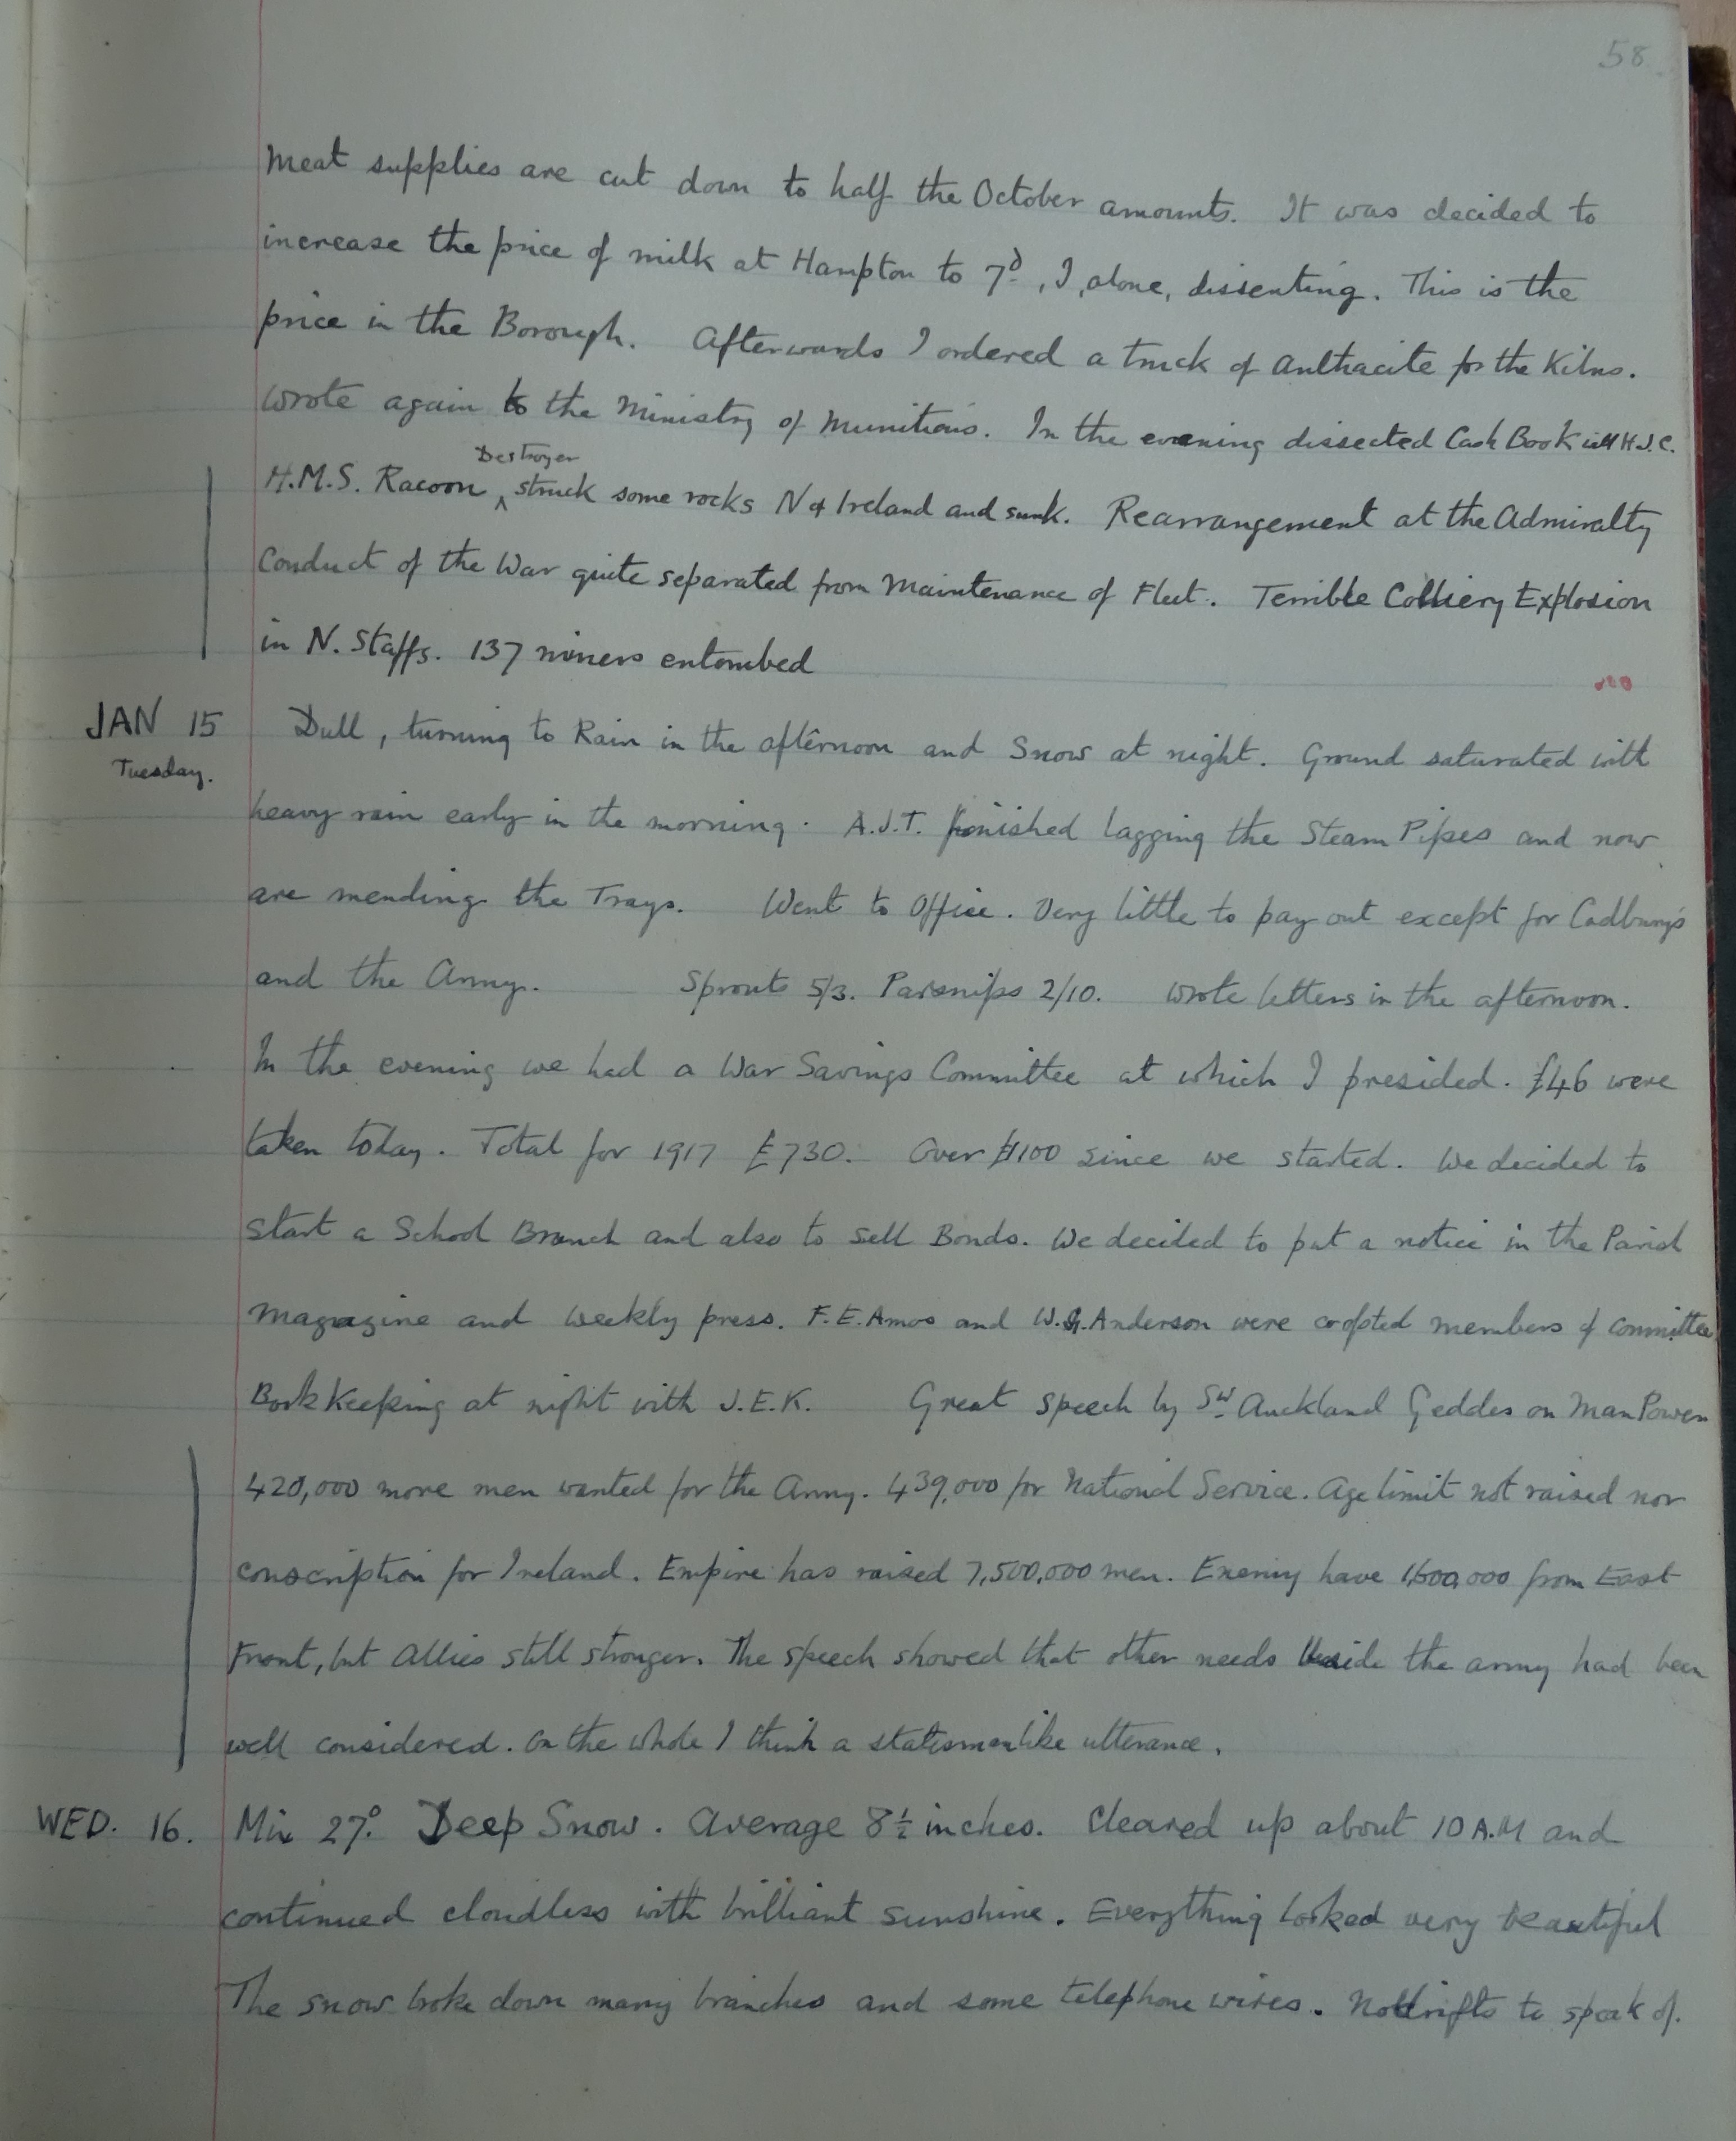 58
Meat supplies are cut down to half the October amounts. It was decided to
increase the price of milk at Hampton to 7d, I, alone, dissenting. This is the
price in the Borough. Afterwards I ordered a truck of Anthracite for the Kilns.
Wrote again to the Ministry of Munitions. In the evening dissected Cash Book with H.J.C.
Destroyer
H.M.S. Racoon ^ struck some rocks N of Ireland and sunk. Rearrangement at the Admiralty
Conduct of the War quite separated from Maintenance of Fleet. Terrible Colliery Explosion
in N. Staffs. 137 miners entombed
JAN 15 Dull, turning to Rain in the afternoon and Snow at night. Ground saturated with
Tuesday.
heavy rain early in the morning. A.J.T. finished lagging the Steam Pipes and now
are mending the Trays. Went to Office. Very little to pay out except for Cadbury's
and the Army. Sprouts 5/3. Parsnips 2/10. Wrote letters in the afternoon.
In the evening we had a War Savings Committee at which I presided. £46 were
taken today. Total for 1917 £730. Over £1100 since we started. We decided to
start a School Branch and also to sell Bonds. We decided to put a notice in the Parish
Magazine and weekly press. F.E. Amos and W.G. Anderson were coopted members of committee
Book Keeping at night with J.E.K. Great speech by Sir Auckland Geddes on Man Power
420,000 more men wanted for the Army. 439,000 for National Service. Age limit not raised nor
conscription for Ireland. Empire has raised 7,500,000 men. Enemy have 1,600,000 from East
Front, but Allies still stronger. The speech showed that other needs beside the army had been
well considered. On the whole I think a statesmanlike utterance.
WED. 16. Min 27°. Deep Snow. Average 8½ inches. Cleared up about 10 A.M and
continued cloudless with brilliant sunshine. Everything looked very beautiful
The snow broke down many branches and some telephone wires. No drifts to speak of.